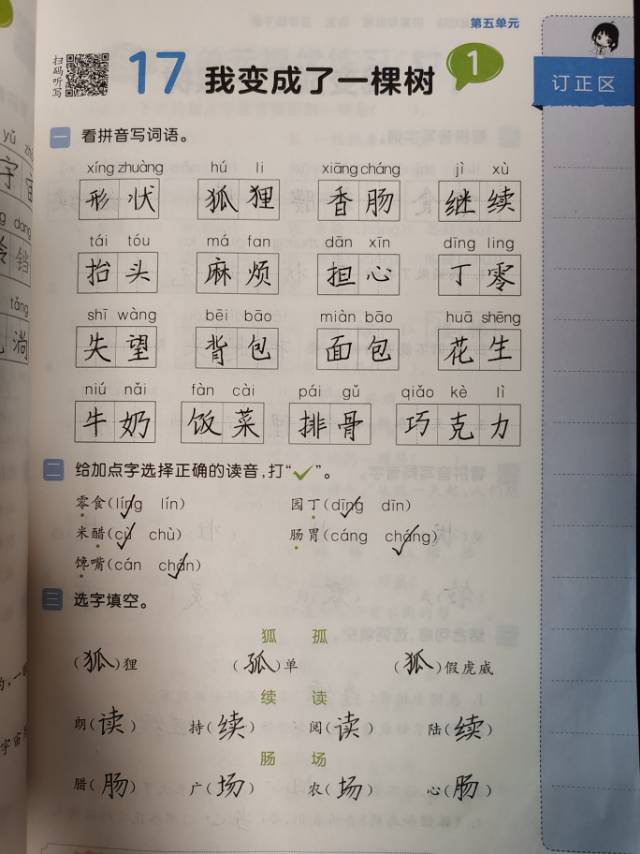 第五单元
扫码听写
17 我变成了一棵树 1
订正区
一 看拼音写词语。
xíng zhuàng hú li xiāng cháng jì xù
形状 狐狸 香肠 继续
tái tóu má fan dān xīn dīng ling
抬头 麻烦 担心 丁零
shī wàng bēi bāo miàn bāo huā shēng
失望 背包 面包 花生
niú nǎi fàn cài pái gǔ qiǎo kè lì
牛奶 饭菜 排骨 巧克力
二 给加点字选择正确的读音,打“✓”。
零食(líng✓ lín) 园丁(dīng✓ dīn)
米醋(cù✓ chù) 肠胃(cáng cháng✓)
馋嘴(cán chán✓)
三 选字填空。
狐 孤
(狐)狸 (孤)单 (狐)假虎威
续 读
朗(读) 持(续) 阅(读) 陆(续)
肠 场
腊(肠) 广(场) 农(场) 心(肠)